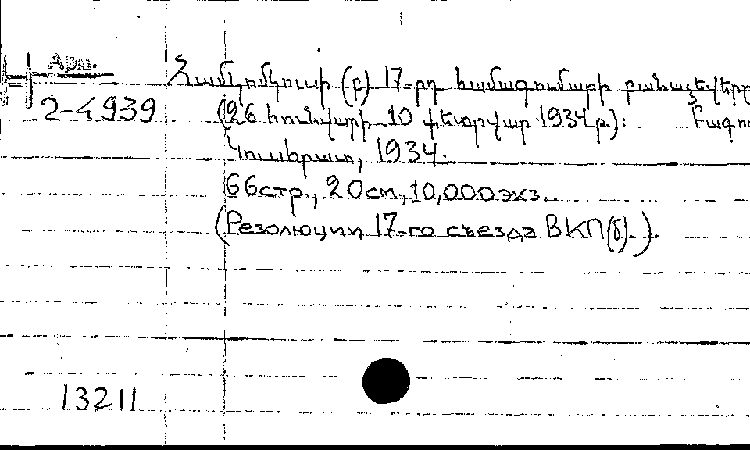 Арм.
2-4939
Համկոմկուսի (բ) 17-րդ համագումարի բանաձևերը
(26 հունվարի 10 փետրվար 1934 թ.): Բագու
Կուսհրատ, 1934.
66стр., 20см, 10,000экз.
(Резолюции 17-го съезда ВКП(б).).
13211